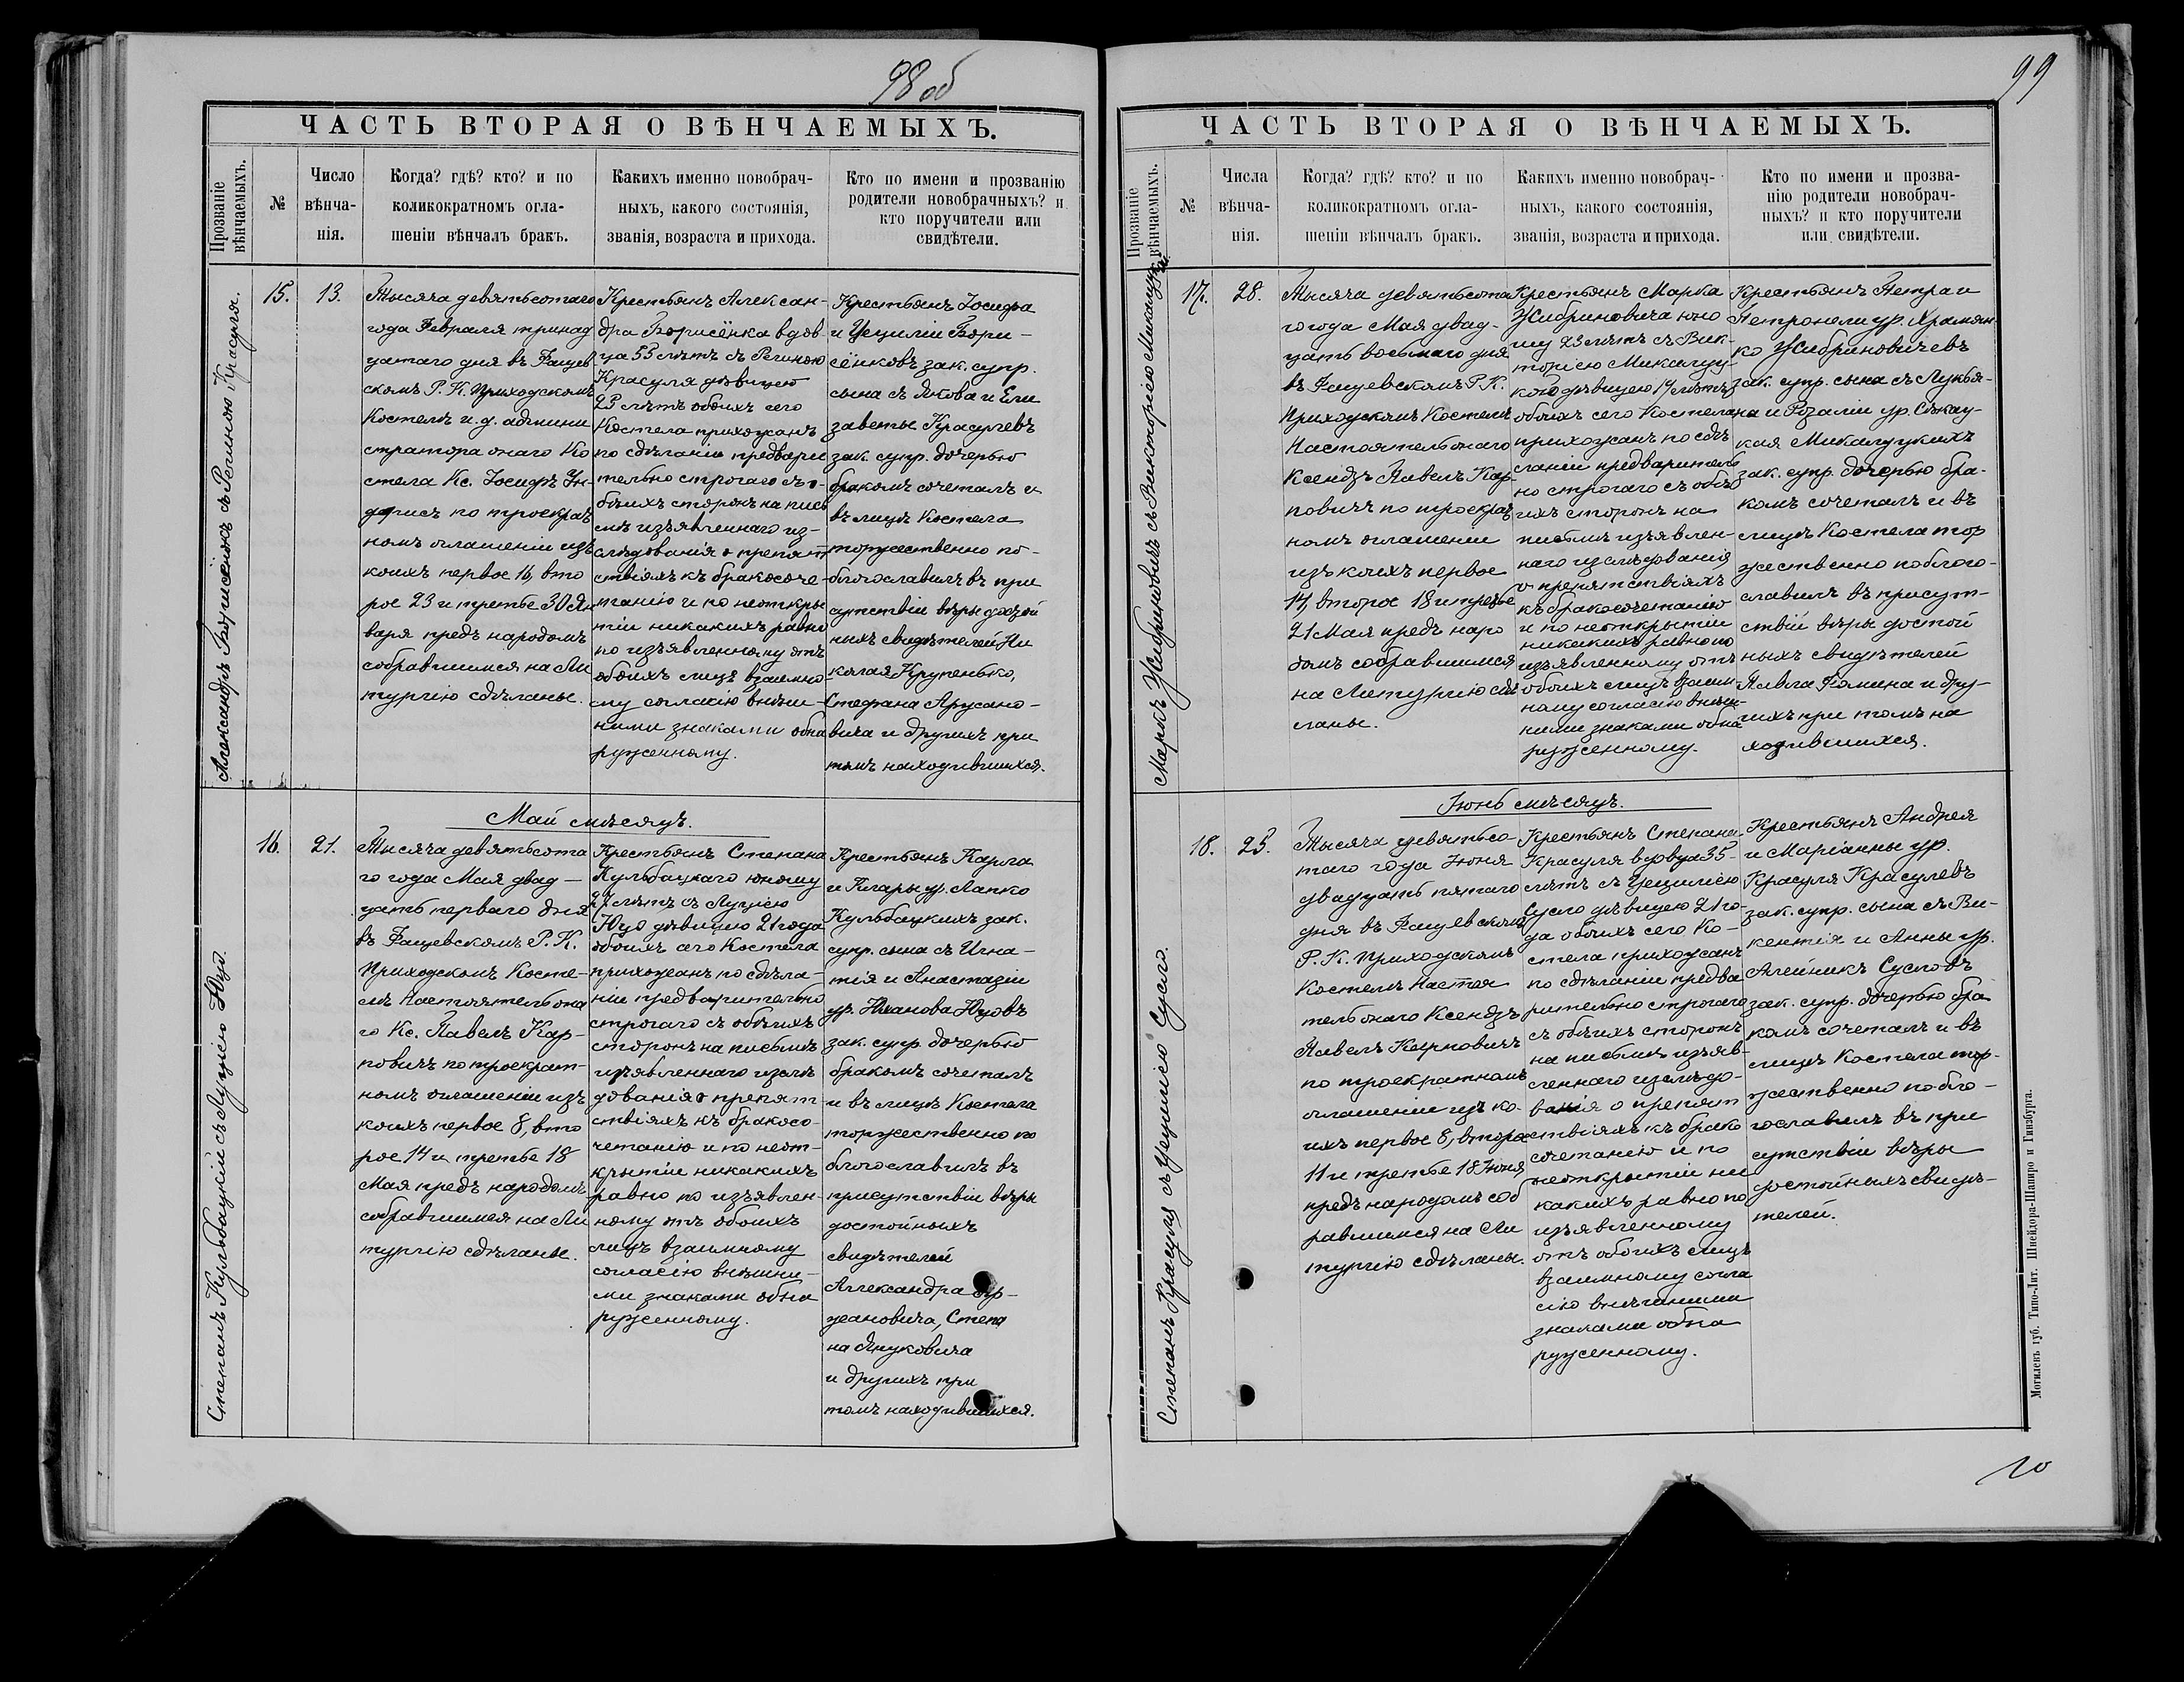 98 об
ЧАСТЬ ВТОРАЯ О ВѢНЧАЕМЫХЪ.
Прозваніе вѣнчаемыхъ.
№
Число вѣнча-
нія.
Когда? гдѣ? кто? и по
коликократномъ огла-
шеніи вѣнчалъ бракъ.
Какихъ именно новобрач-
ныхъ, какого состоянія,
званія, возраста и прихода.
Кто по имени и прозванію
родители новобрачныхъ? и
кто поручители или
свидѣтели.
Александръ Борисёнокъ съ Региною Красуля.
15.
13.
Тысяча девятьсотаго
года Февраля тринад
цатаго дня въ Фащев
скомъ Р. К. Приходскомъ
Костелѣ и. д. админи
стратора онаго Ко
стела Кс. Іосифъ
по троекрат
номъ оглашеніи изъ
коихъ первое 16, вто
рое 23 и третье 30 Ян
варя предъ народомъ
собравшимся на Ли
тургію сдѣланье.
Крестьянъ Алексан-
дра Борисёнка вдов
ца 55 лѣтъ съ Региною
Красуля дѣвицею
25 лѣтъ обоихъ сего
Костела прихожанъ
по сдѣланіи предвари
тельно строгаго съ о-
боихъ сторонъ на пись
мѣ изъявленнаго из-
слѣдованія о препят
ствіяхъ къ бракосоче-
танію и по неоткры
тіи никакихъ равно
по изъявленному отъ
обоихъ лицъ взаимно
му согласію внѣш-
ними знаками обна
руженному.
Крестьянъ Іосифа
и Цециліи Бори-
сёнковъ зак. супр.
сына съ Якова и Ели
заветы Красулевъ
зак. супр. дочерью
бракомъ сочеталъ и
въ лицѣ Костела
торжественно по-
благославилъ въ при
сутствіи вѣры достой
ныхъ свидѣтелей Ни
колая Крупенько,
Стефана Арусано-
вича и другихъ при
томъ находившихся.
Май мѣсяцъ.
Степанъ Кульбацкій съ Луціею Юцо.
16.
21.
Тысяча девятьсота
го года Мая двад-
цать перваго дня
въ Фащевскомъ Р. К.
Приходскомъ Косте-
лѣ Настоятель она
го Кс. Павелъ Кар-
повичъ по троекрат-
номъ оглашеніи изъ
коихъ первое 8, вто
рое 14 и третье 18
Мая предъ народомъ
собравшимся на Ли
тургію сдѣланье.
Крестьянъ Степана
Кульбацкаго юношу
27 лѣтъ съ Луціею
Юцо дѣвицею 21 года
обоихъ сего Костела
прихожанъ по сдѣла-
ніи предварительно
строгаго съ обоихъ
сторонъ на письмѣ
изъявленнаго изслѣ
дованія о препят
ствіяхъ къ бракосо-
четанію и по неот-
крытіи никакихъ
равно по изъявлен-
ному отъ обоихъ
лицъ взаимному
согласію внѣшни-
ми знаками обна
руженному.
Крестьянъ Карла
и Клары ур. Лапко
Кульбацкихъ зак.
супр. сына съ Игна-
тія и Анастазіи
ур. Юцовъ
зак. супр. дочерью
бракомъ сочеталъ
и въ лицѣ Костела
торжественно по
благославилъ въ
присутствіи вѣры
достойныхъ
свидѣтелей
Александра
Степа
на Януковича
и другихъ при
томъ находившихся.
99
ЧАСТЬ ВТОРАЯ О ВѢНЧАЕМЫХЪ.
Прозваніе вѣнчаемыхъ.
№
Числа вѣнча-
нія.
Когда? гдѣ? кто? и по
коликократномъ огла-
шеніи вѣнчалъ бракъ.
Какихъ именно новобрач-
ныхъ, какого состоянія,
званія, возраста и прихода.
Кто по имени и прозва-
нію родители новобрач-
ныхъ? и кто поручители
или свидѣтели.
Маркъ Жибриновичъ съ Викторіею
17.
28.
Тысяча девятьсота
го года Мая двад-
цать восьмаго дня
въ Фащевскомъ Р. К.
Приходскомъ Костелѣ
Настоятель онаго
Ксендзъ Павелъ Кар-
повичъ по троекрат
номъ оглашеніи
изъ коихъ первое
14, второе 18 и третье
21 Мая предъ наро
домъ собравшимся
на Литургію сдѣ
ланье.
Крестьянъ Марка
Жибриновича юно
шу 23 лѣтъ съ Вик-
торіею Микалуц-
кою дѣвицею 17 лѣтъ
обоихъ сего Костела
прихожанъ по сдѣ
ланіи предваритель
но строгаго съ обо
ихъ сторонъ на
письмѣ изъявлен-
наго изслѣдованія
о препятствіяхъ
къ бракосочетанію
и по неоткрытіи
никакихъ равно по
изъявленному отъ
обоихъ лицъ взаим-
ному согласію внѣш-
ними знаками обна
руженному.
Крестьянъ Петра и
Петронели ур. Храмян-
ко Жибриновичевъ
зак. супр. сына съ Лукья-
на и Розаліи ур. Сѣкац-
кая Микалуцкихъ
зак. супр. дочерью бра-
комъ сочеталъ и въ
лицѣ Костела тор
жественно поблаго-
славилъ въ присут-
ствіи вѣры достой
ныхъ свидѣтелей
Павла Фомина и дру-
гихъ при томъ на
ходившихся.
Іюнь мѣсяцъ.
Степанъ Красуля съ Цециліею Сусло.
18.
25.
Тысяча девятьсо-
таго года Іюня
двадцать пятаго
дня въ Фащевскомъ
Р. К. Приходскомъ
Костелѣ Настоя
тель онаго Ксендзъ
Павелъ Карповичъ
по троекратномъ
оглашеніи изъ ко-
ихъ первое 8, второе
11 и третье 18 Іюня
предъ народомъ соб
равшимся на Ли
тургію сдѣланы.
Крестьянъ Степана
Красуля вдовца 35-
лѣтъ съ Цециліею
Сусло дѣвицею 21 го-
да обоихъ сего Ко-
стела прихожанъ
по сдѣланіи предва
рительно строгаго
съ обѣихъ сторонъ
на письмѣ изъяв-
леннаго изслѣдо-
ванія о препят
ствіяхъ къ брако
сочетанію и по
неоткрытіи ни
какихъ равно по
изъявленному
отъ обоихъ лицъ
взаимному согла
сію внѣшними
знаками обна
руженному.
Крестьянъ Андрея
и Маріанны ур.
Красуля Красулевъ
зак. супр. сына съ Ви-
кентія и Анны ур.
Алейникъ Сусловъ
зак. супр. дочерью бра
комъ сочеталъ и въ
лицѣ Костела тор-
жественно побла-
гославилъ въ при
сутствіи вѣры
достойныхъ свидѣ-
телей.
Могилевъ губ. Типо-Лит. Шнейдора-Шапиро и Гинзбурга.